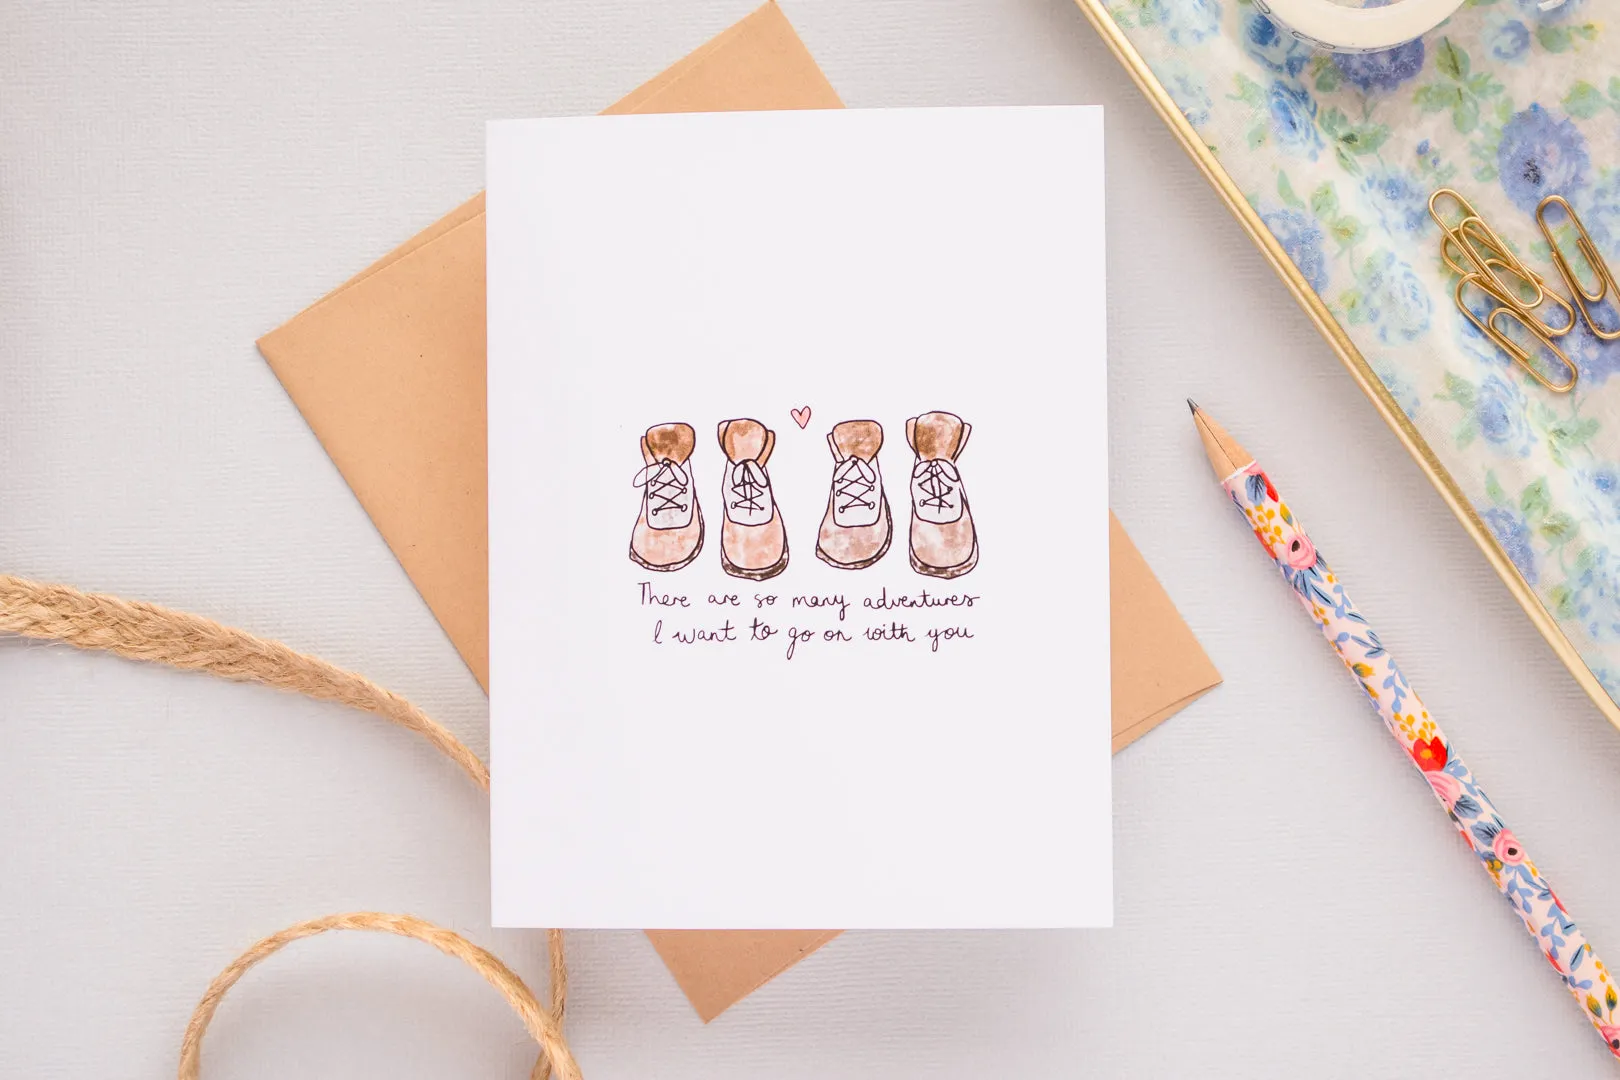 There are so many adventures
I want to go on with you